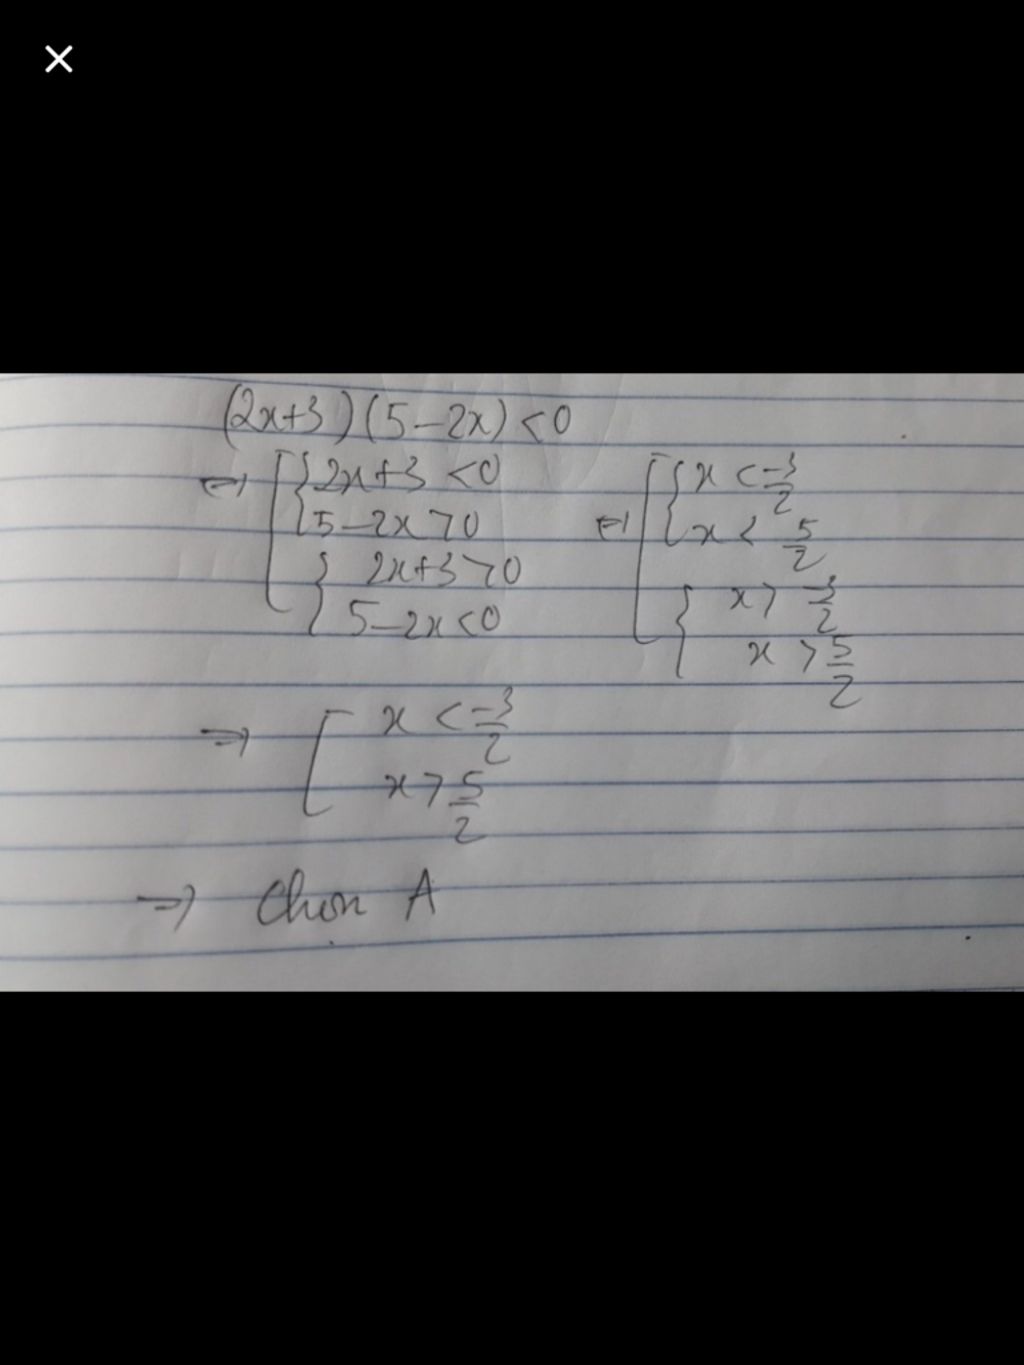 (2x+3)(5-2x)<0
⇔ [ { 2x+3 <0
5-2x>0
{ 2x+3>0
5-2x<0
⇔ [ { x < -3/2
x < 5/2
{ x > -3/2
x > 5/2
⇒ [ x < -3/2
x > 5/2
⇒ Chọn A